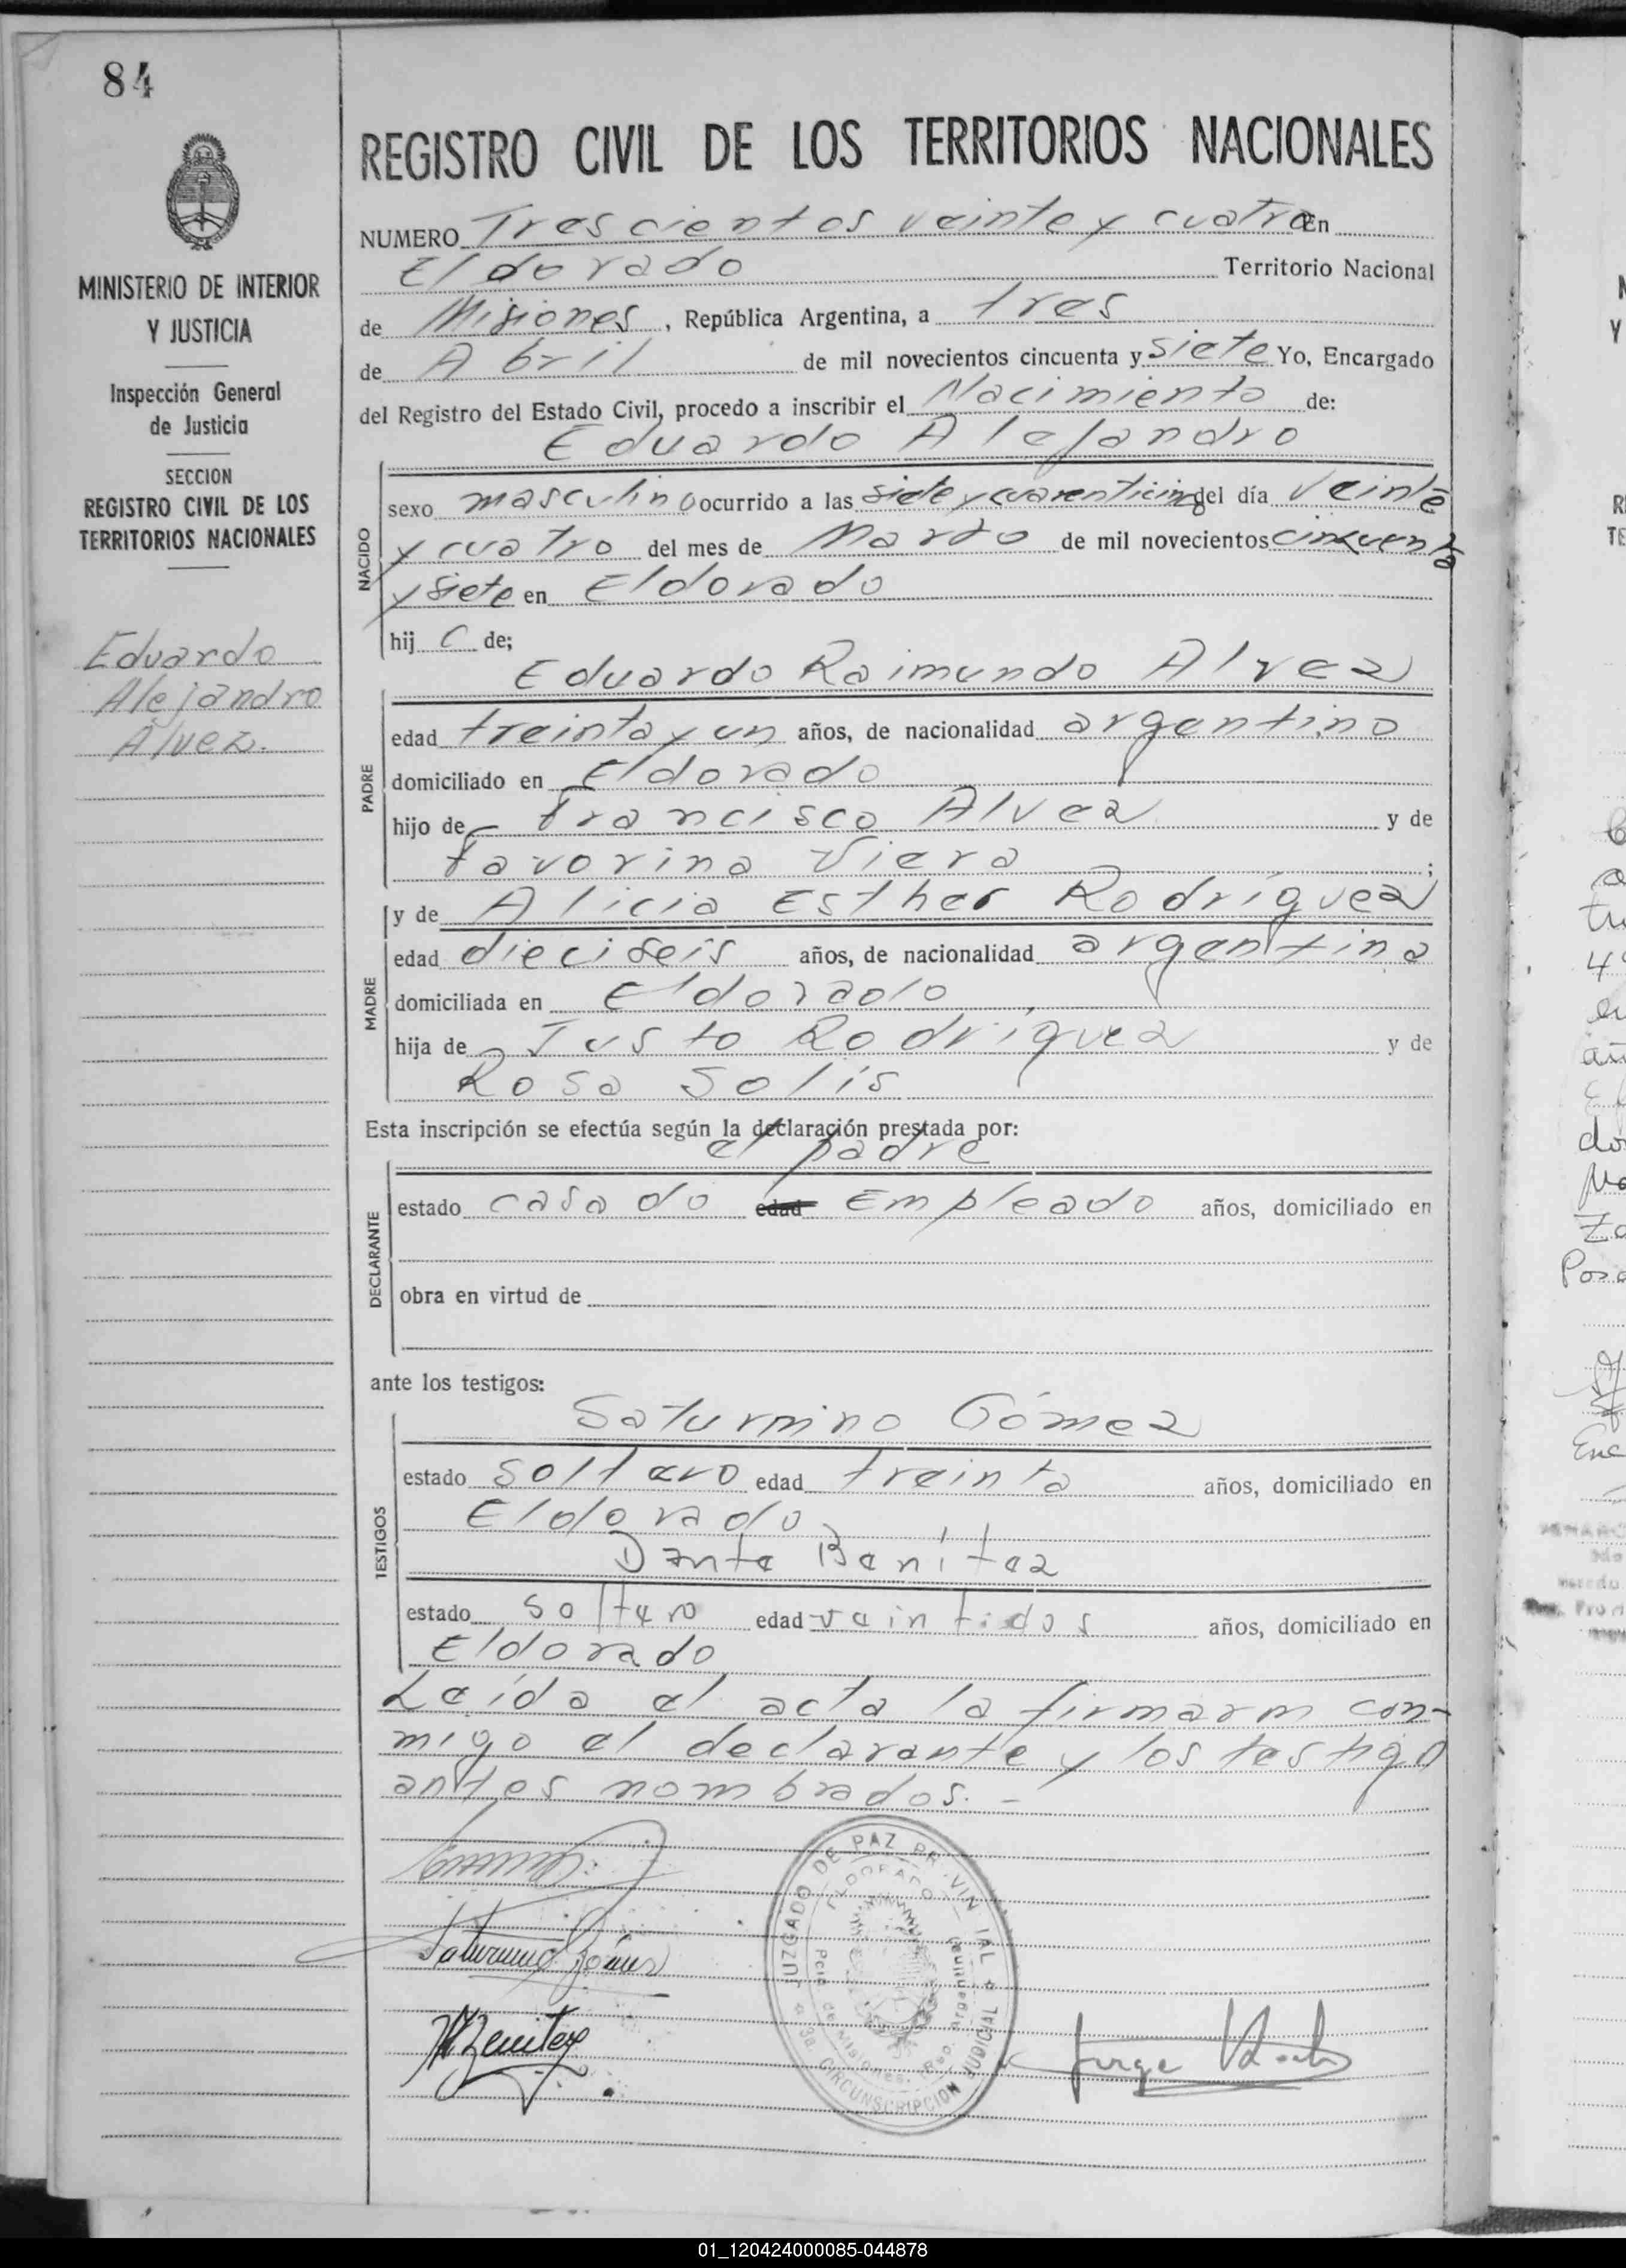 84
MINISTERIO DE INTERIOR
Y JUSTICIA
Inspección General
de Justicia
SECCION
REGISTRO CIVIL DE LOS
TERRITORIOS NACIONALES
Eduardo
Alejandro
Alvez.
REGISTRO CIVIL DE LOS TERRITORIOS NACIONALES
NUMERO Trescientos veinte y cuatro En
Eldorado Territorio Nacional
de Misiones, República Argentina, a tres
de Abril de mil novecientos cincuenta y siete Yo, Encargado
del Registro del Estado Civil, procedo a inscribir el Nacimiento de:
Eduardo Alejandro
NACIDO
sexo masculino ocurrido a las siete y cuarenticinco del día veinte
y cuatro del mes de Marzo de mil novecientos cincuenta
y siete en Eldorado
hij o de;
Eduardo Raimundo Alvez
PADRE
edad treinta y un años, de nacionalidad argentino
domiciliado en Eldorado
hijo de Francisco Alvez y de
Favorina Viera ;
MADRE
y de Alicia Esther Rodríguez
edad dieciseis años, de nacionalidad argentina
domiciliada en Eldorado
hija de Justo Rodríguez y de
Rosa Solis
Esta inscripción se efectúa según la declaración prestada por:
el padre
DECLARANTE
estado casado edad Empleado años, domiciliado en
obra en virtud de
ante los testigos:
Saturnino Gómez
TESTIGOS
estado soltero edad treinta años, domiciliado en
Eldorado
Dante Benitez
estado soltero edad veintidos años, domiciliado en
Eldorado
Leída el acta la firmaron con-
migo el declarante y los testigo
antes nombrados. -
Saturnino Gómez
Benitez
JUZGADO DE PAZ PROVINCIAL
ELDORADO
Pcia. de Misiones. Rep. Argentina
3a. CIRCUNSCRIPCION JUDICIAL
Jorge
01_120424000085-044878